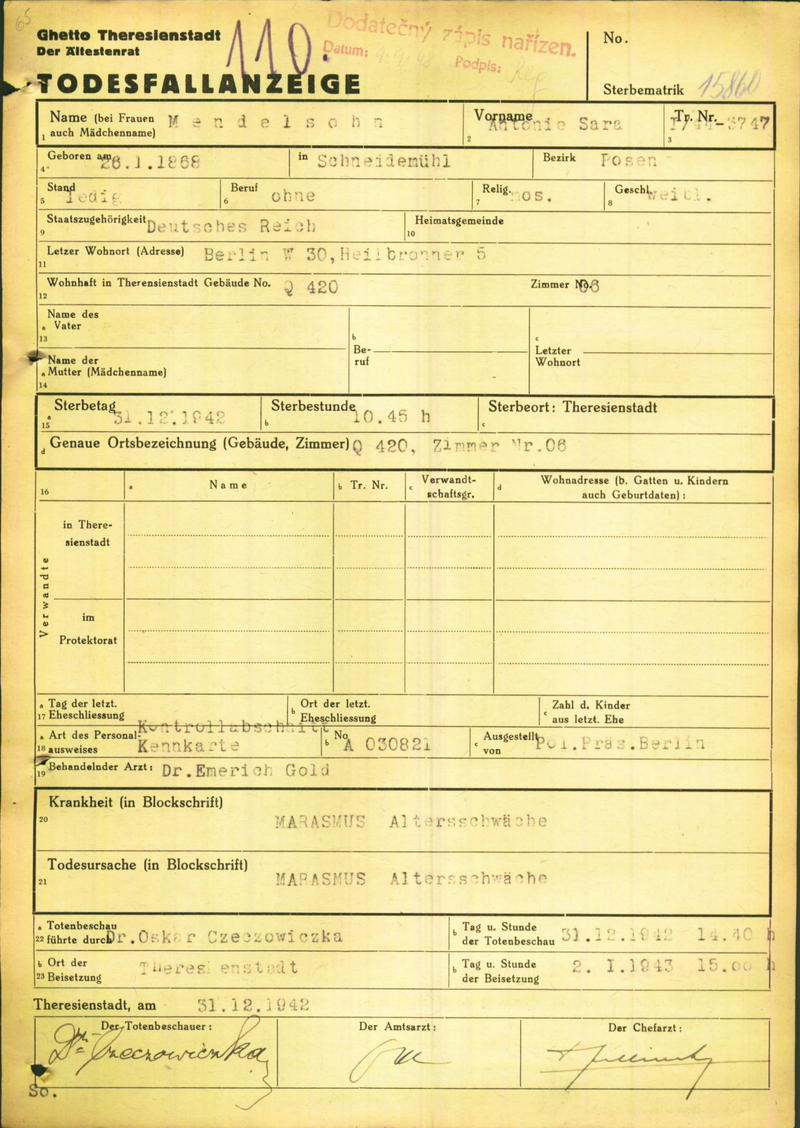 65
Ghetto Theresienstadt
Der Ältestenrat
110.
Dodatečný zápis nařízen.
Datum:
Podpis:
No.
TODESFALLANZEIGE
Sterbematrik 15860
Name (bei Frauen auch Mädchenname) Mendelsohn
1
Vorname Antonie Sara
2
Tr. Nr. 3747
3
Geboren am 26.1.1868
4
in Schneidemühl
Bezirk Posen
Stand ledig
5
Beruf ohne
6
Relig. mos.
7
Geschl. weibl.
8
Staatszugehörigkeit Deutsches Reich
9
Heimatsgemeinde
10
Letzer Wohnort (Adresse) Berlin W 30, Heilbronner 5
11
Wohnhaft in Therensienstadt Gebäude No. Q 420
12
Zimmer No. 06
Name des
a Vater
13
b Be-
ruf
c Letzter
Wohnort
Name der
a Mutter (Mädchenname)
14
a Sterbetag 31.12.1942
15
b Sterbestunde 10.45 h
c Sterbeort: Theresienstadt
d Genaue Ortsbezeichnung (Gebäude, Zimmer) Q 420, Zimmer Nr.06
16
a Name
b Tr. Nr.
c Verwandt-
schaftsgr.
d Wohnadresse (b. Gatten u. Kindern
auch Geburtdaten):
Verwandte
in There-
sienstadt
im
Protektorat
a Tag der letzt.
17 Eheschliessung
b Ort der letzt.
Eheschliessung
c Zahl d. Kinder
aus letzt. Ehe
Kontrollabschnitt
a Art des Personal-
18 ausweises Kennkarte
b No A 030821
c Ausgestellt
von Pol.Präs.Berlin
19 Behandelnder Arzt: Dr.Emerich Gold
Krankheit (in Blockschrift)
20 MARASMUS Altersschwäche
Todesursache (in Blockschrift)
21 MARASMUS Altersschwäche
a Totenbeschau
22 führte durch Dr.Oskar Czeczowiczka
b Tag u. Stunde
der Totenbeschau 31.12.1942 14.40 h
b Ort der
23 Beisetzung Theresienstadt
b Tag u. Stunde
der Beisetzung 2. I.1943 15.00 h
Theresienstadt, am 31.12.1942
Der Totenbeschauer:
Der Amtsarzt:
Der Chefarzt:
Dr. Czeczowiczka
So.